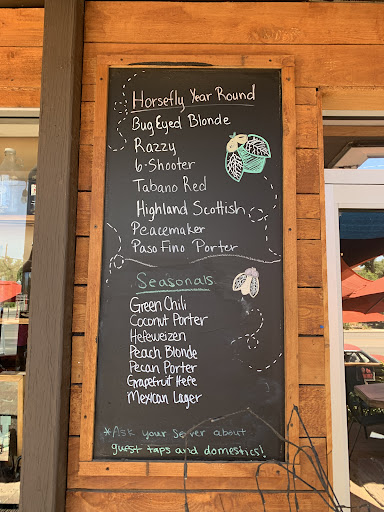 Horsefly Year Round
Bug Eyed Blonde
Razzy
6-Shooter
Tabano Red
Highland Scottish
Peacemaker
Paso Fino Porter
Seasonals
Green Chili
Coconut Porter
Hefeweizen
Peach Blonde
Pecan Porter
Grapefruit Hefe
Mexican Lager
*Ask your server about
guest taps and domestics!